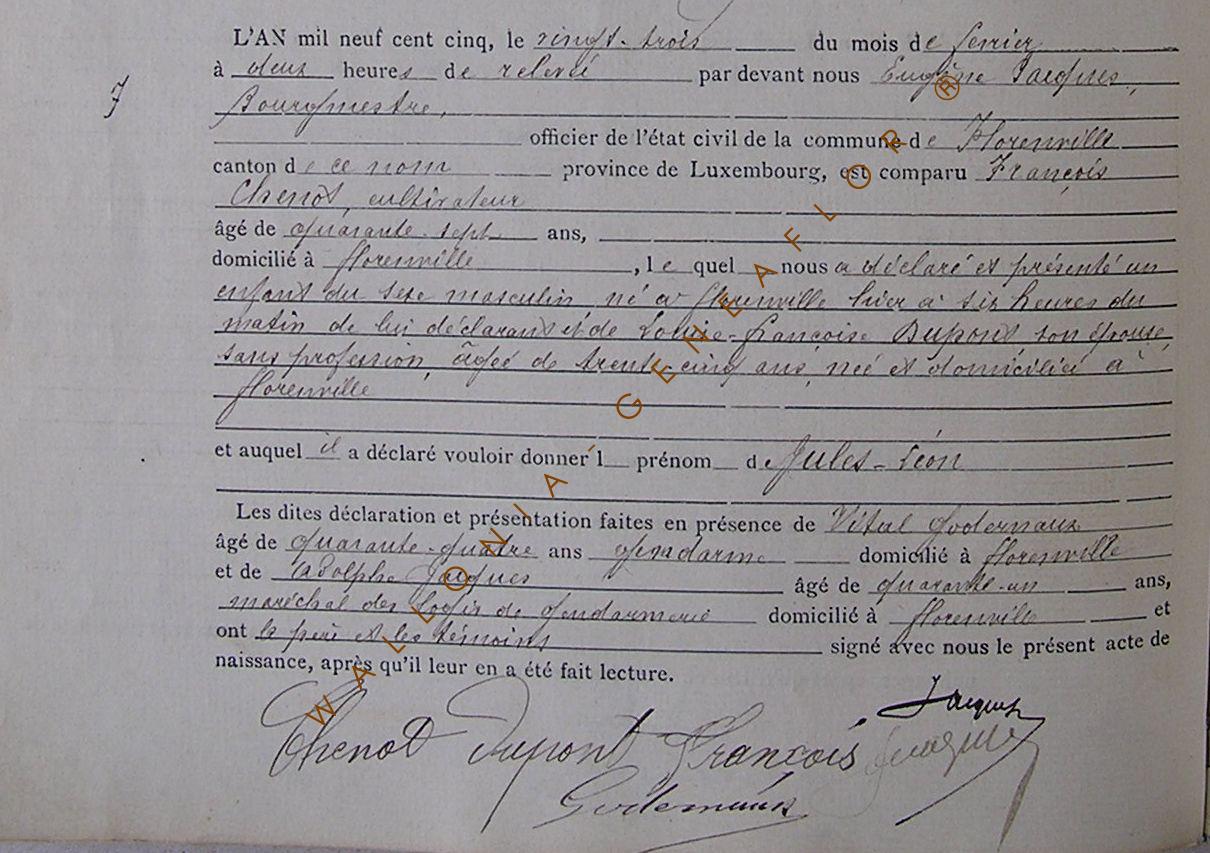 L'AN mil neuf cent cinq, le vingt-trois du mois de fevrier
à deux heures de relevée par devant nous Eugène Jacques,
7 Bourgmestre,
officier de l'état civil de la commune de Florenville
canton de ce nom province de Luxembourg, est comparu François
Chenot, cultivateur
âgé de quarante-sept ans,
domicilié à florenville, le quel nous a déclaré et présenté un
enfant du sexe masculin né à florenville hier à six heures du
matin de lui déclarant et de Louise-françoise Dupont son épouse,
sans profession, âgée de trente-cinq ans, née et domiciliée à
florenville
et auquel il a déclaré vouloir donner l prénom de Jules-Léon
Les dites déclaration et présentation faites en présence de Vital Godernaux
âgé de quarante-quatre ans gendarme domicilié à florenville
et de Adolphe Jacques âgé de quarante-un ans,
maréchal des logis de gendarmerie domicilié à florenville et
ont le père et les témoins signé avec nous le présent acte de
naissance, après qu'il leur en a été fait lecture.
Jacques
Chenot Dupont François Jacques
Godernaux
WALLONIA GENEAFLOR ®